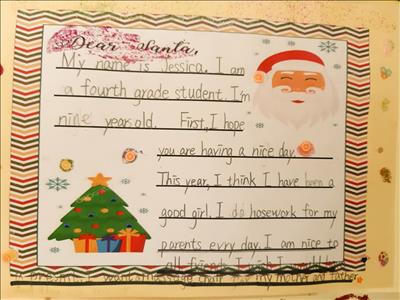 Dear Santa,
My name is Jessica. I am
a fourth grade student. I'm
nine years old. First, I hope
you are having a nice day.
This year, I think I have been a
good girl. I do hosework for my
parents evry day. I am nice to
all friends. I wish I
for my mother and father.